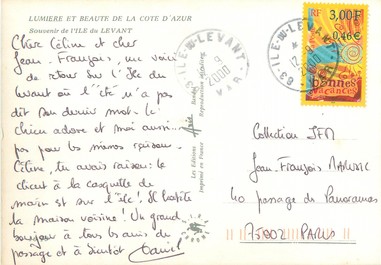 LUMIERE ET BEAUTE DE LA COTE D'AZUR
Souvenir de l'ILE du LEVANT
Chère Céline et cher
Jean-François, me voici
de retour sur l'île du
Levant où l'été n'a pas
dit son dernier mot. Le
chien adore et moi aussi...
pas pour les mêmes raisons.
Céline, tu avais raison: le
client à la casquette de
marin est sur l'île! Il habite
la maison voisine! Un grand
bonjour à tous les amis du
passage et à bientôt Daniel
Les Editions
Imprimé en France
Reproduction
83 ILE-DU-LEVANT
12 - 9
2000
VAR
83 ILE-DU-LEVANT
12 - 9
2000
VAR
RF
3,00F
0,46€
bonnes
vacances
Collection JFM
Jean-François
40 passage des Panoramas
75002 PARIS